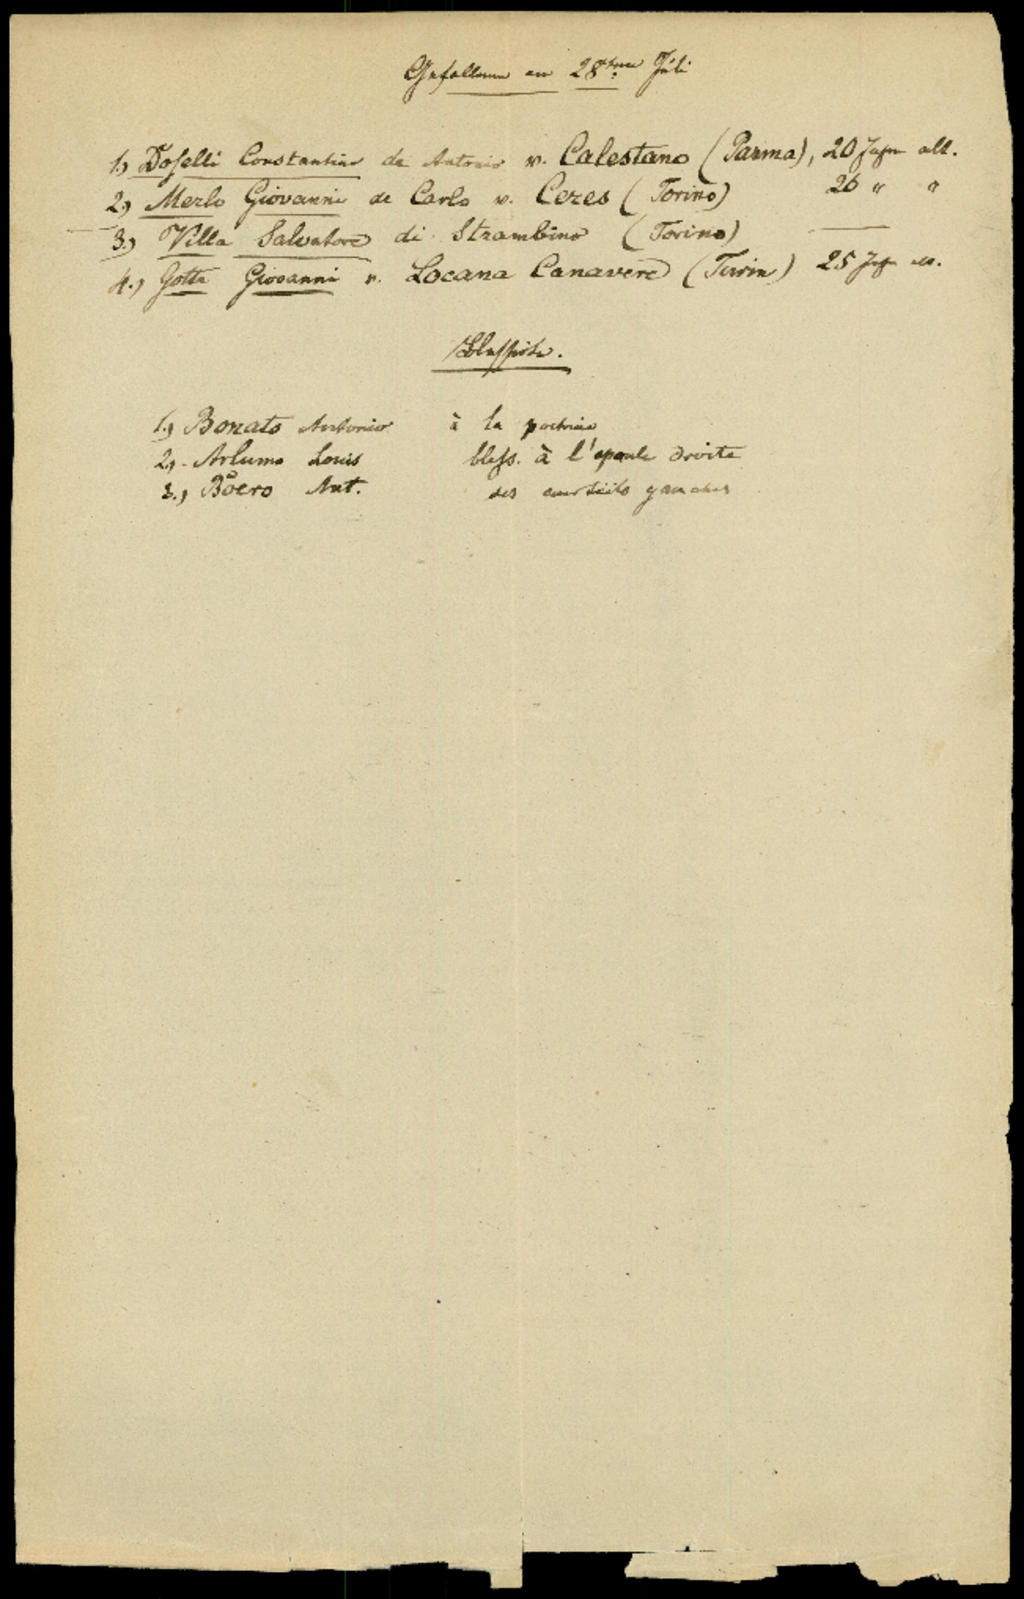 Gefallene am 28ten Juli
1.) Doselli Constantino de Antonio v. Calestano (Parma), 20 Jahre alt.
2.) Merlo Giovanni de Carlo v. Ceres (Torino) 26 " "
3.) Villa Salvatore di Strambino (Torino) —
4.) Gotta Giovanni v. Locana Canavere (Turin) 25 Jahre alt.
Blessirte.
1.) Bonato Antonio à la poitrine
2.) Arlumo Louis bless. à l'epaule droite
3.) Boero Ant. des gauches